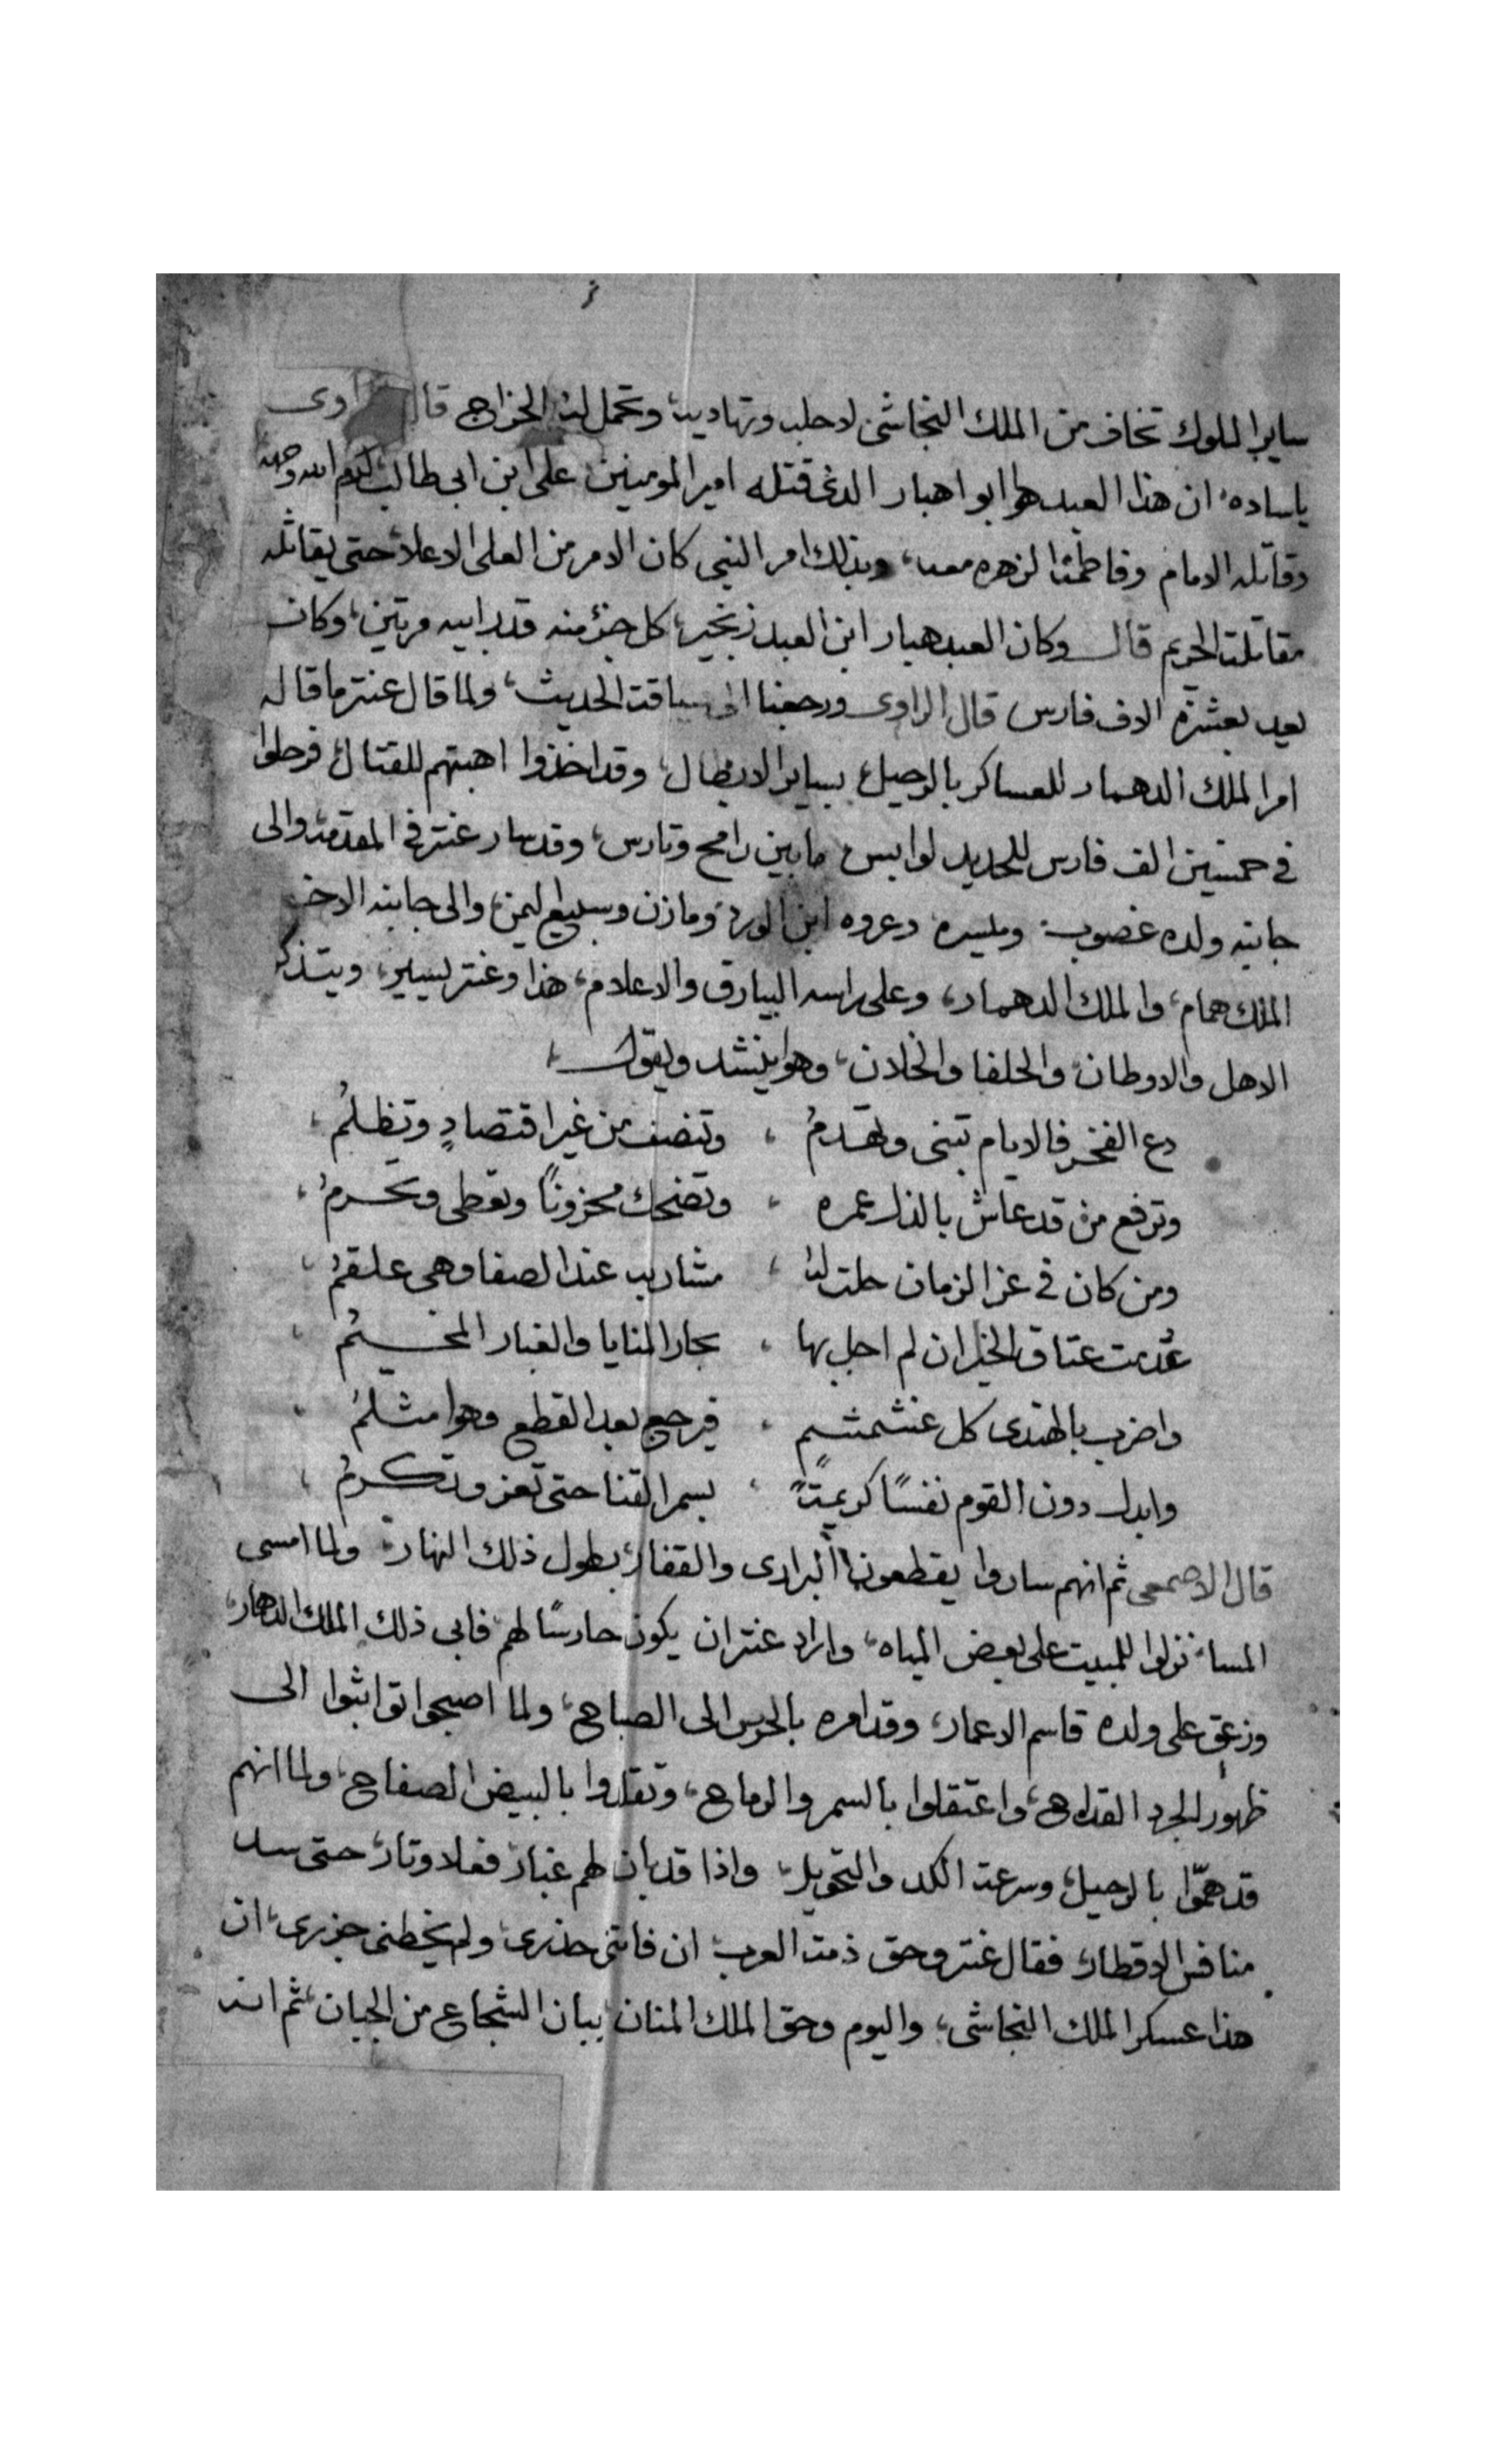 ساير الملوك تخاف من الملك النجاشى لاجله وتهاديه وتحمل له الخراج قال الراوى
ياساده ان هذا العبد هوا ابوا هبار الدى قتله امير المومنين على ابن ابى طالب كرم الله وجهه
وقاتله الامام وفاطمة الزهره معه، وبذلك امر النبى كان الامر من العلى الاعلا حتى يقاتله
مقاتلة الحريم قال وكان العبد هبار ابن العبد زنجير كل جزؤ منه قدر ابيه مرتين، وكان
يعد بعشرة الاف فارس قال الراوى ورجعنا الى سياقة الحديث، ولما قال عنتر ما قاله
امر الملك الدهمار للعساكر بالرحيل بساير الابطال، وقد اخذوا اهبتهم للقتال فرحلوا
فى خمسين الف فارس للحديد لوابس ما بين رامح وتارس، وقد سار عنتر فى المقدمة والى
جانبه ولده غضوب وميسره وعروه ابن الورد ومازن وسبيع اليمن، والى جانبه الاخر
الملك همام، والملك الدهمار، وعلى راسه البيارق والاعلام، هذا وعنتر يسير، ويتذكر
الاهل والاوطان، والحلفا والخلان، وهوا ينشد ويقول،
دع الفخر فالايام تبنى وتهدمُ ، وتنصف من غير اقتصادٍ وتظلمُ ،
وترفع من قد عاش بالذل عمره ، وتضحك محزوناً وتعطى وتحرمُ ،
ومن كان فى عز الزمان حلت له ، مشارب عند الصفا وهى علقمُ ،
عُدمت عتاق الخيل ان لم اجل بها ، بحار المنايا والغبار المخيمُ ،
واضرب بالهندى كل عشمشمٍ ، فيرجع بعد القطع وهوا مثلمُ ،
وابدل دون القوم نفسًا كريمتاً ، بسمر القنا حتى تعز وتكرمُ ،
قال الاصمعى ثم انهم ساروا يقطعون البرادى والقفار، بطول ذلك النهار، ولما امسى
المسا، نزلوا للمبيت على بعض المياه، واراد عنتر ان يكون حارسًا لهم فابى ذلك الملك الدهمار،
وزعق على ولده قاسم الاعمار، وقد امره بالحرس الى الصباح، ولما اصبحوا تواثبوا الى
ظهور الجرد القداح، واعتقلوا بالسمر والرماح، وتقلدوا بالبيض الصفاح، ولما انهم
قد همّوا بالرحيل، وسرعة الكد والتحويل، واذا قد بان لهم غبار، فعلا وتار، حتى سد
منافس الاقطار، فقال عنتر وحق ذمة العرب ان فاتنى حذرى، ولم يخطنى حزرى، ان
هذا عسكر الملك النجاشى، واليوم وحق الملك المنان يبان الشجاع من الجبان، ثم انه